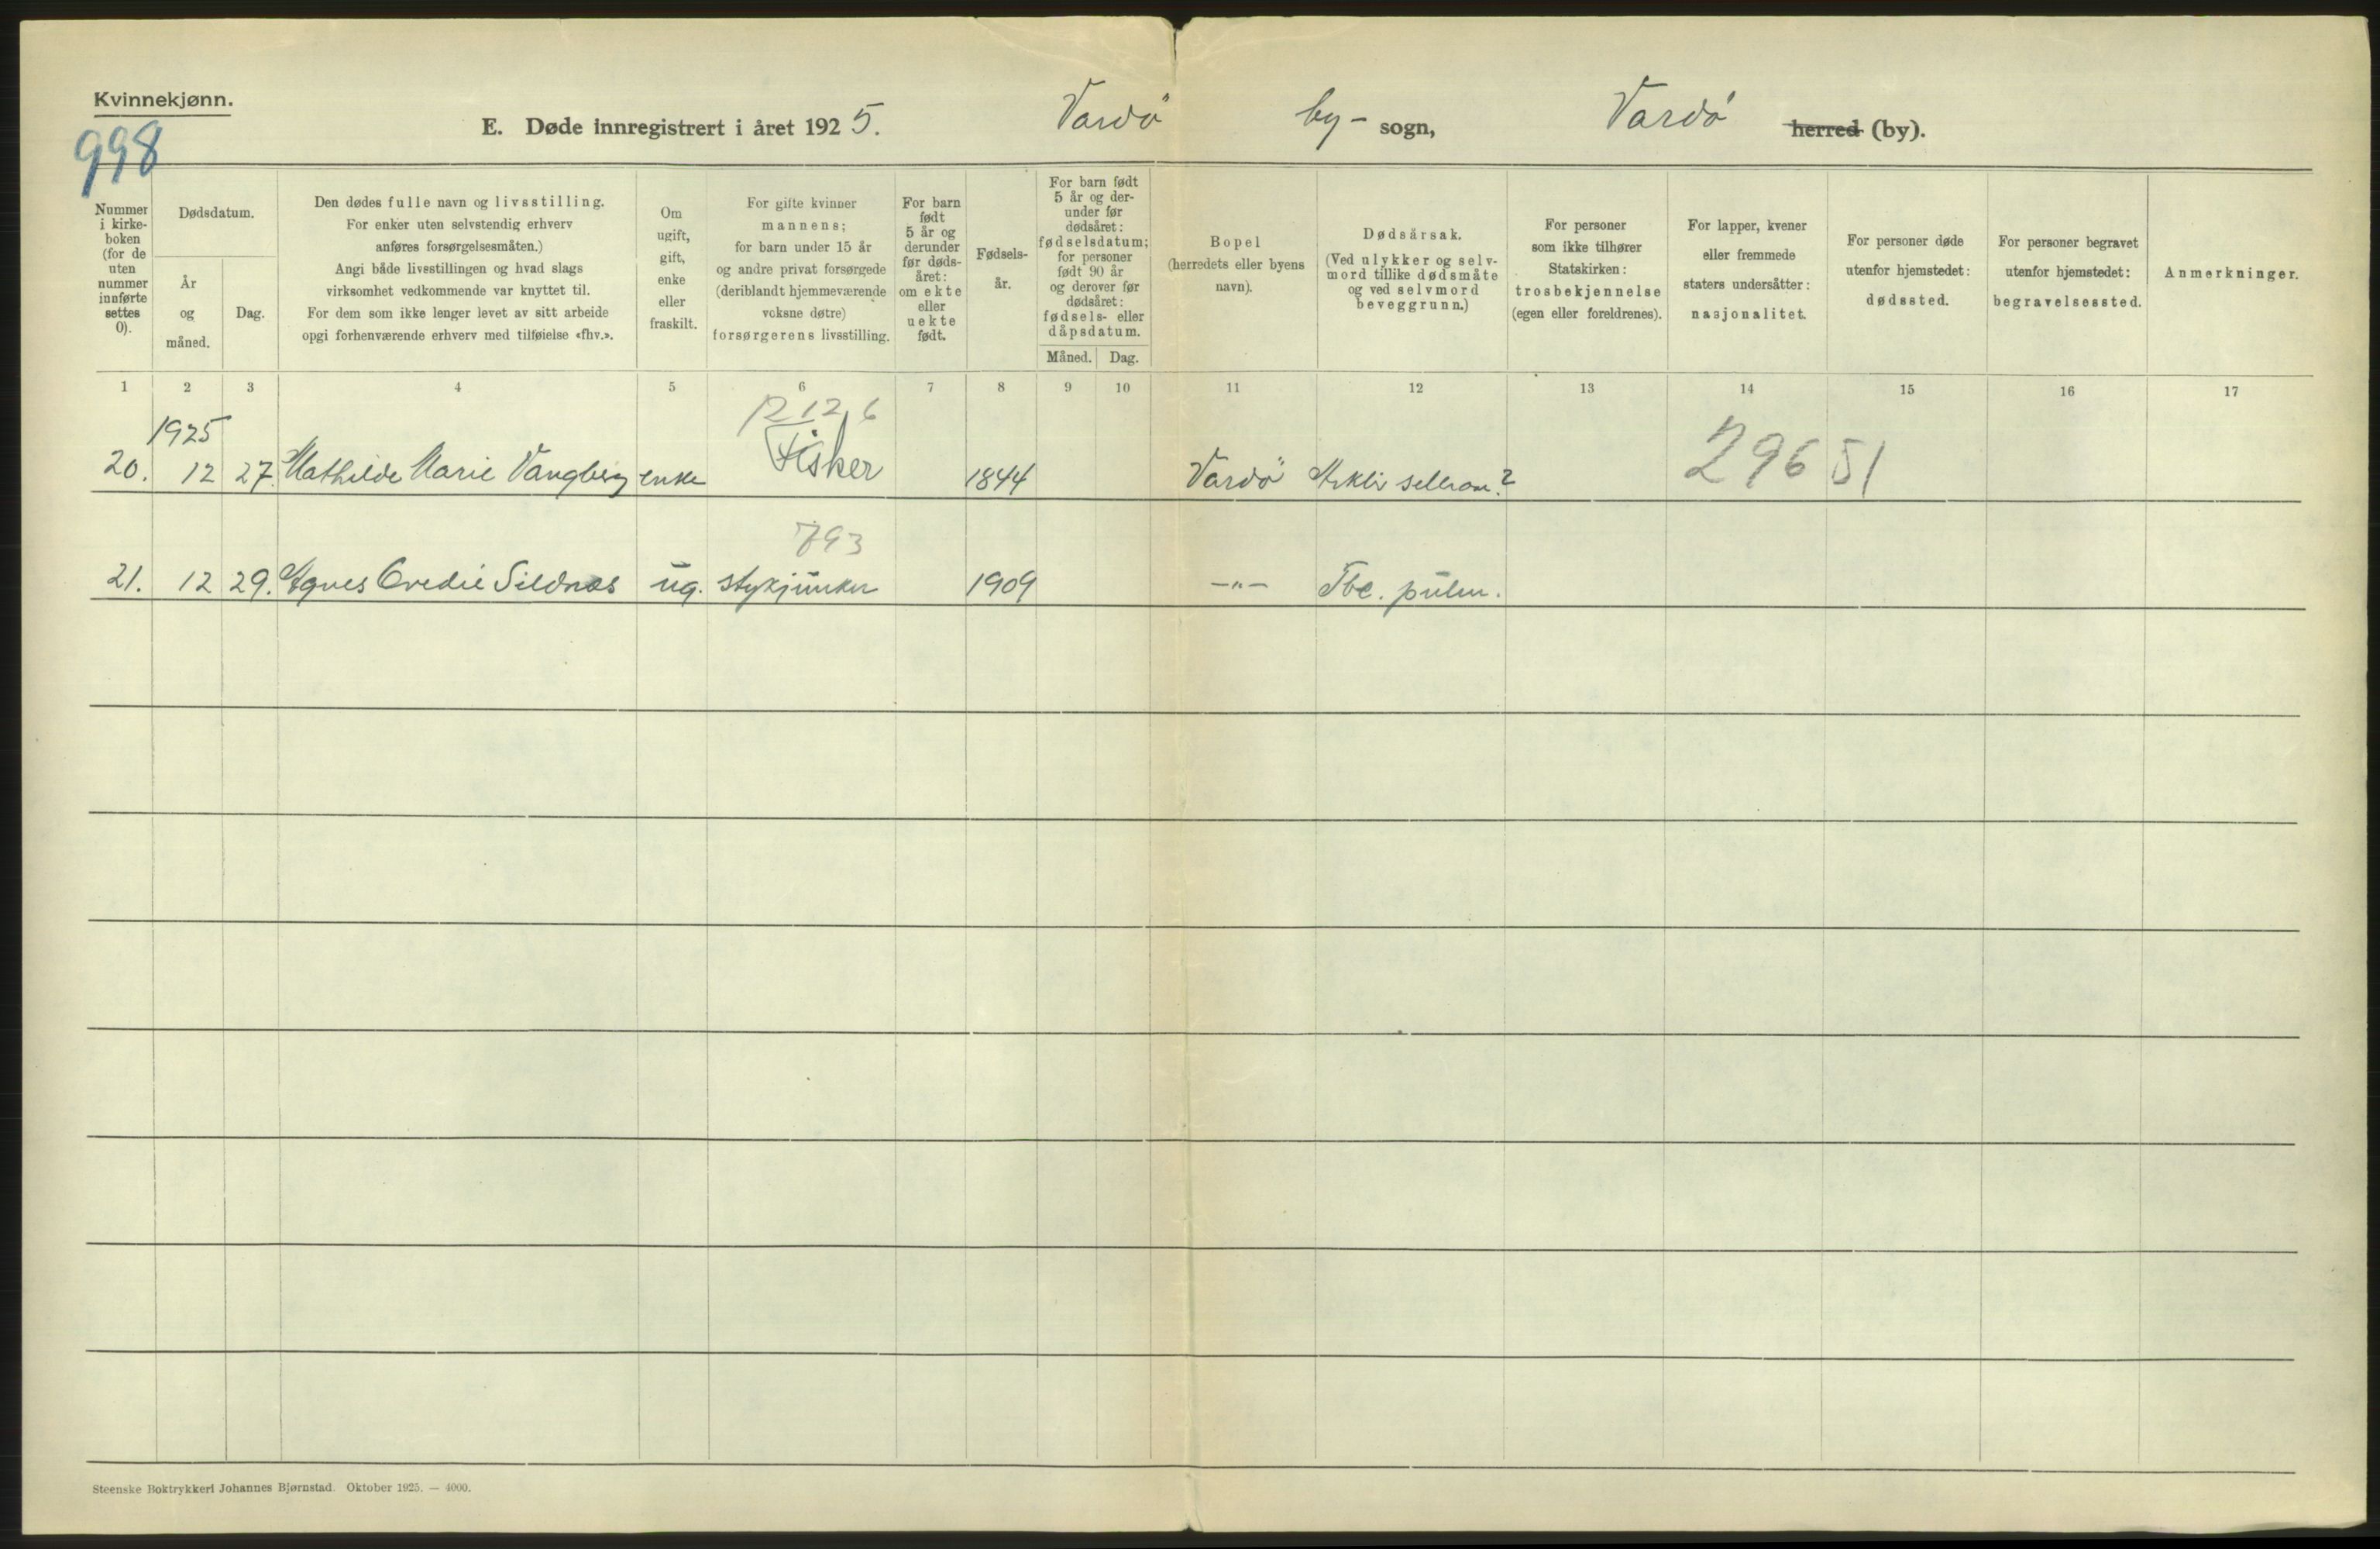 Kvinnekjønn.
998
E. Døde innregistrert i året 1925. Vardö by- sogn, Vardö herred (by).
Nummer i kirke- boken (for de uten nummer innførte settes 0).
Dødsdatum.
År og måned.
Dag.
Den dødes fulle navn og livsstilling.
For enker uten selvstendig erhverv
anføres forsørgelsesmåten.)
Angi både livsstillingen og hvad slags
virksomhet vedkommende var knyttet til.
For dem som ikke lenger levet av sitt arbeide
opgi forhenværende erhverv med tilføielse «fhv.».
Om ugift, gift, enke eller fraskilt.
For gifte kvinner
mannens;
for barn under 15 år
og andre privat forsørgede
(deriblandt hjemmeværende
voksne døtre)
forsørgerens livsstilling.
For barn født 5 år og derunder før døds- året: om ekte eller uekte født.
Fødsels- år.
For barn født 5 år og der- under før dødsåret: fødselsdatum; for personer født 90 år og derover før dødsåret: fødsels- eller dåpsdatum.
Måned. Dag.
Bopel
(herredets eller byens
navn).
Dødsårsak.
(Ved ulykker og selv-
mord tillike dødsmåte
og ved selvmord
beveggrunn.)
For personer
som ikke tilhører
Statskirken:
trosbekjennelse
(egen eller foreldrenes).
For lapper, kvener
eller fremmede
staters undersåtter:
nasjonalitet.
For personer døde
utenfor hjemstedet:
dødssted.
For personer begravet
utenfor hjemstedet:
begravelsessted.
Anmerkninger.
1 2 3 4 5 6 7 8 9 10 11 12 13 14 15 16 17
1925
20. 12 27. Mathilde Marie Vangberg enke Fisker 1844 Vardö 296 51
793
21. 12 29. Agnes Ovedie Sildnes ug. stykjunker 1909 -"- Tbc. pulm.
Steenske Boktrykkeri Johannes Bjørnstad. Oktober 1925. — 4000.